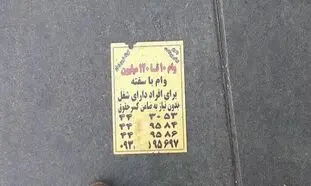 وام ۱۰ تا ۱۲۰ میلیون
وام با سفته
برای افراد دارای شغل
بدون نیاز به ضامن کسر حقوق
۴۴ ۳۰ ۵۳
۴۴ ۹۵ ۸۴
۴۴ ۹۵ ۸۶
۰۹۲ ۱۹۵۶۹۷